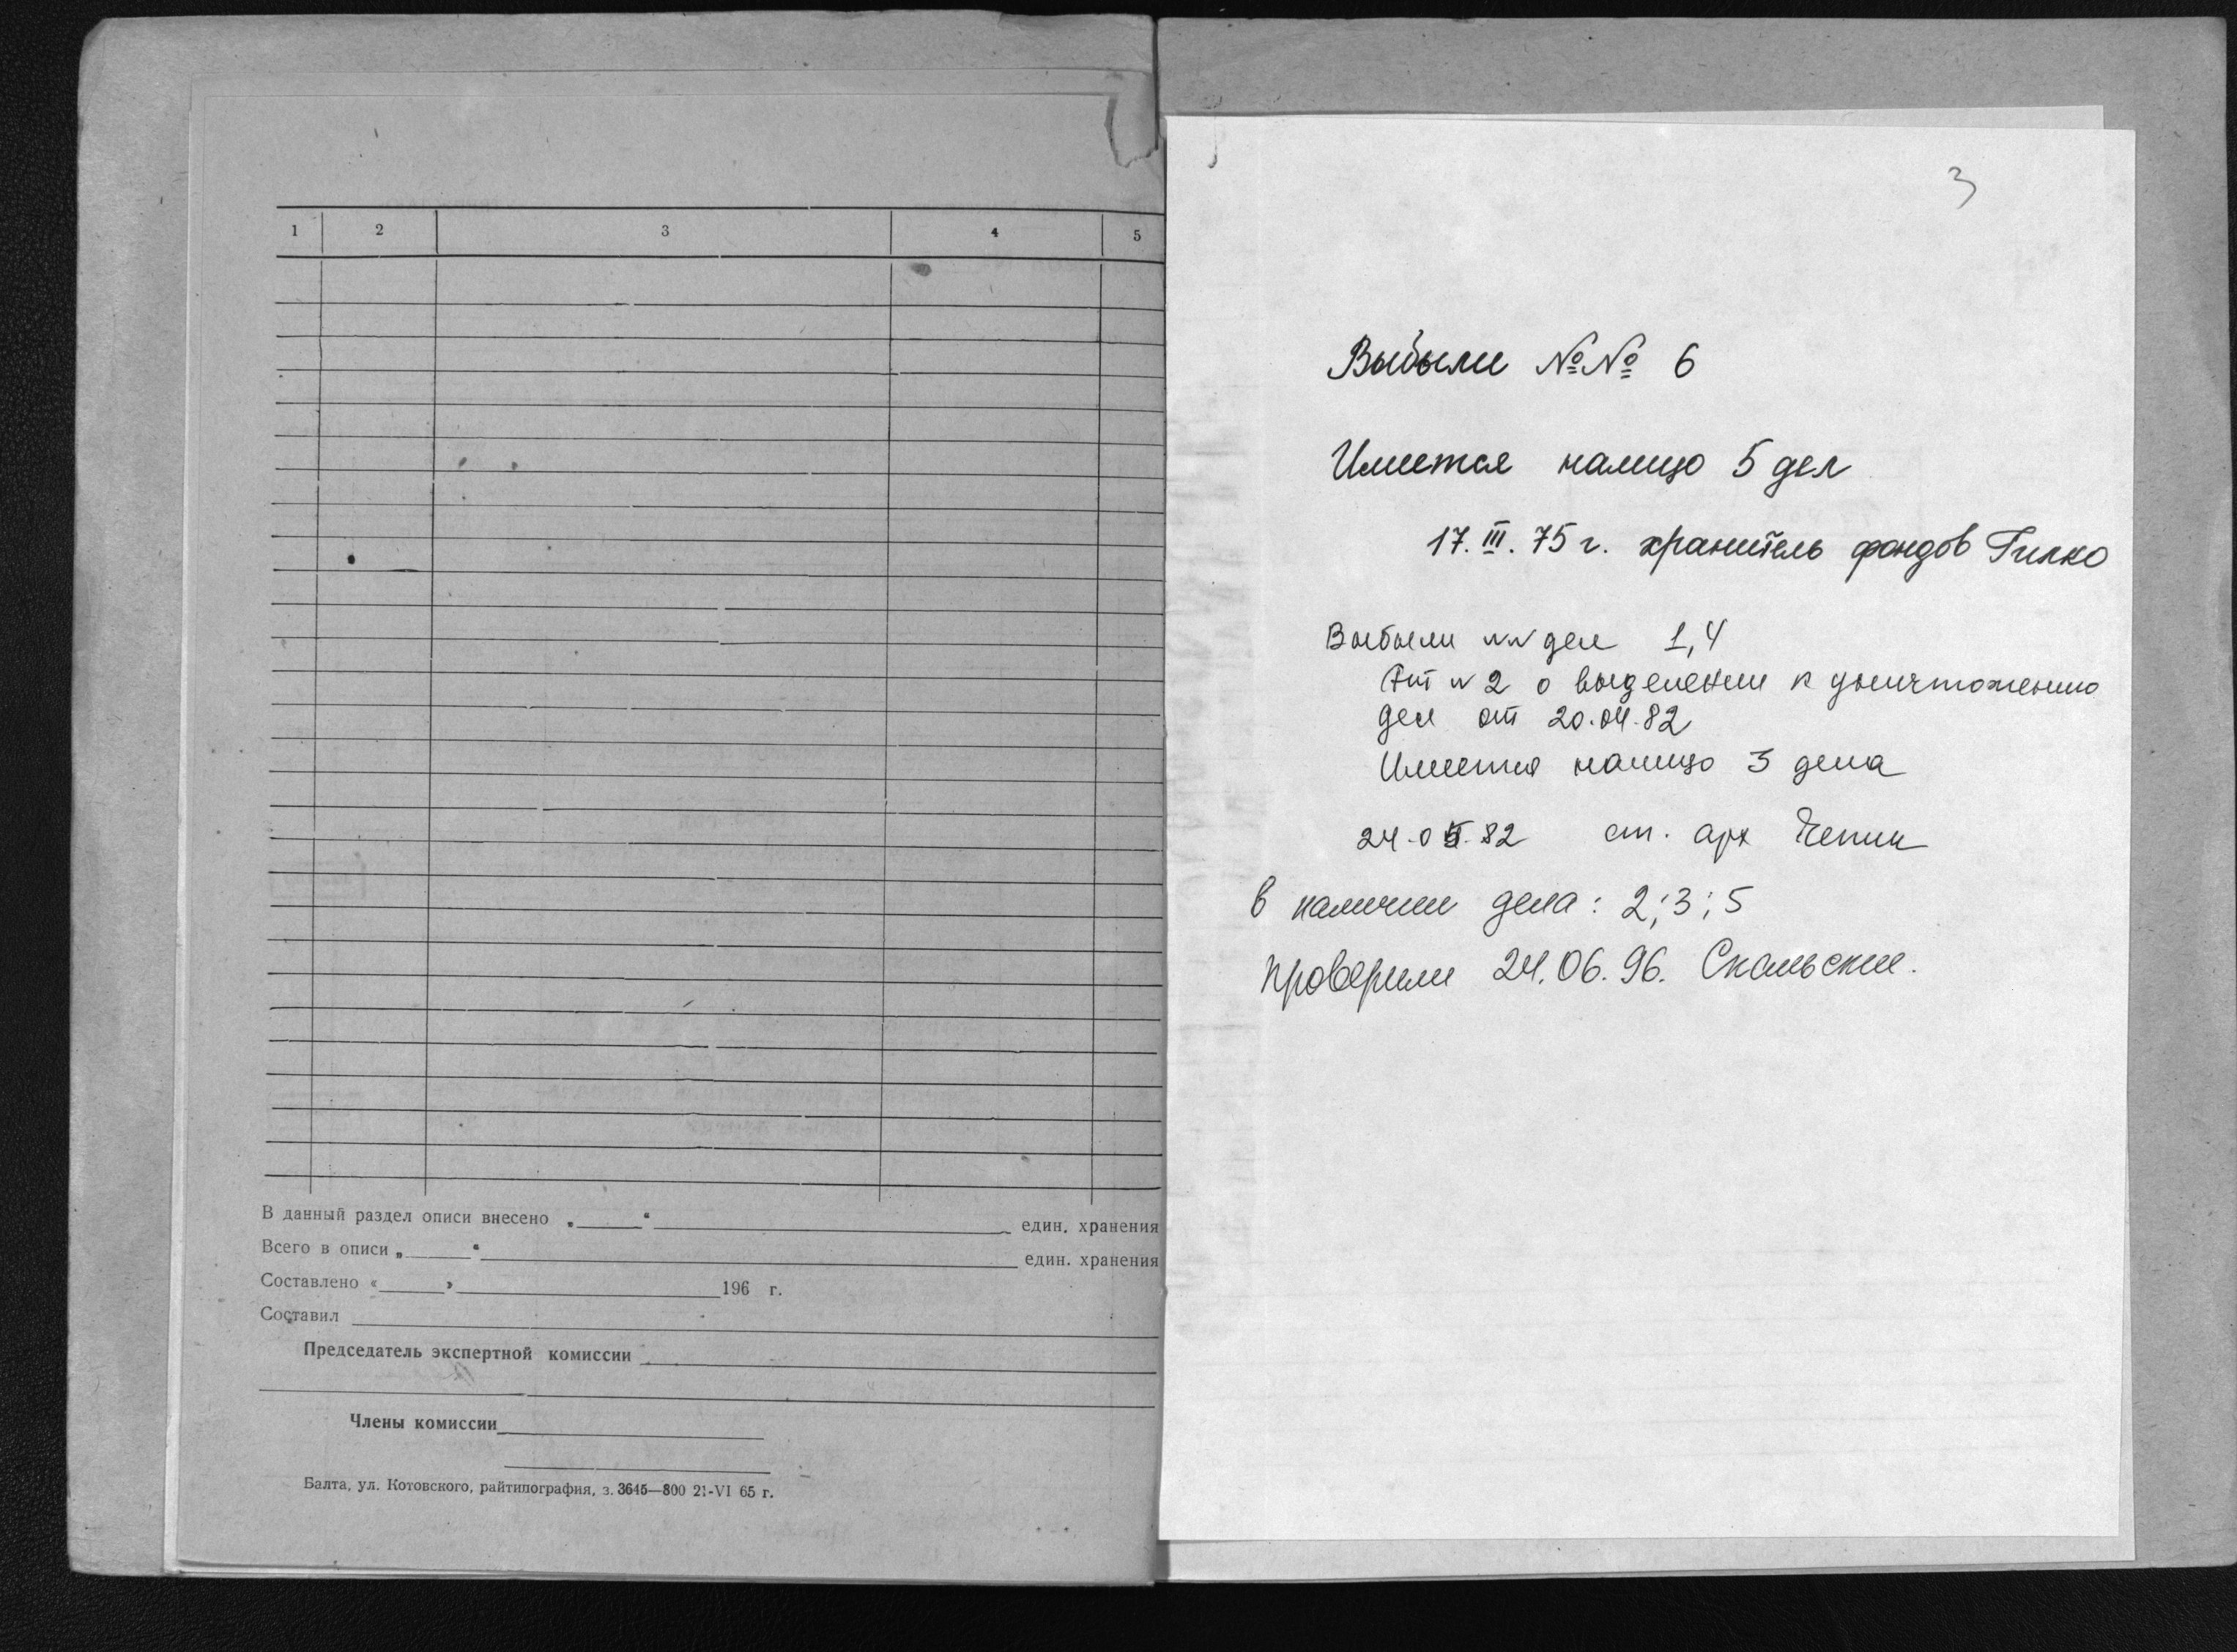 1 2 3 4 5
В данный раздел описи внесено „ “ един. хранения
Всего в описи „ “ един. хранения
Составлено « » 196 г.
Составил
Председатель экспертной комиссии
Члены комиссии
Балта, ул. Котовского, райтипография, з. 3645—800 21-VI 65 г.
3
Выбыли №№ 6
Имеется налицо 5 дел
17.III.75 г. хранитель фондов Гилко
Выбыли №№ дел 1,4
Акт № 2 о выделении к уничтожению
дел от 20.04.82
Имеется налицо 3 дела
24.05.82 ст. арх Чепик
в наличии дела: 2; 3; 5
проверили 24.06.96. Скальские.